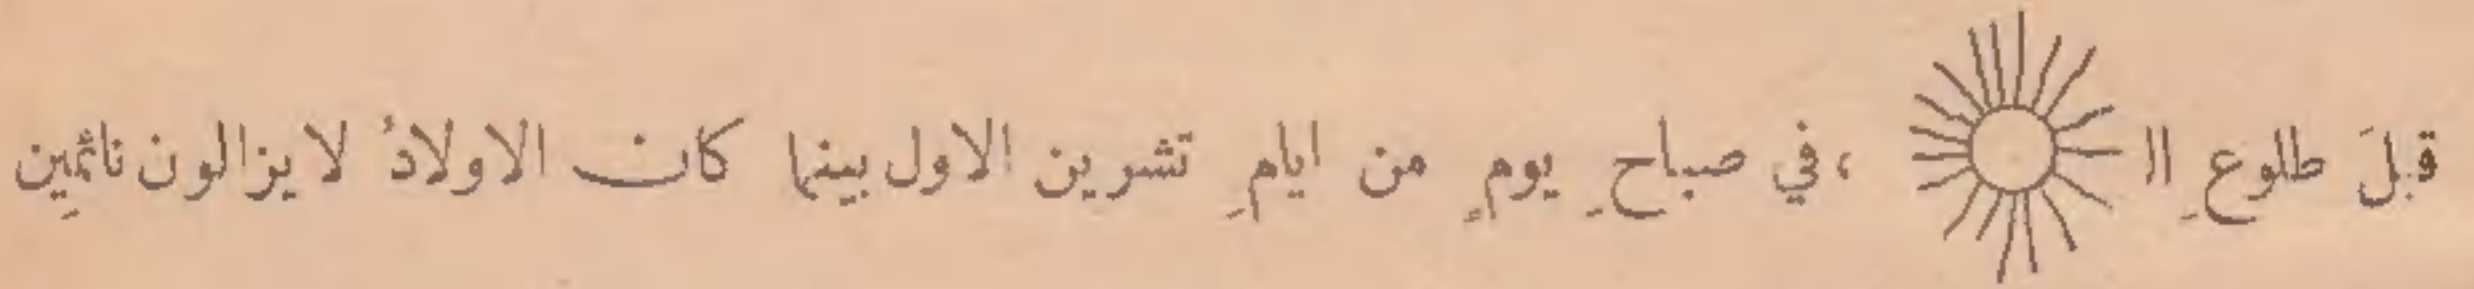 قبلَ طلوعِ الـ ، في صباحِ يومٍ من ايامِ تشرين الاول بينما كان الاولادُ لا يزالون نائمِين